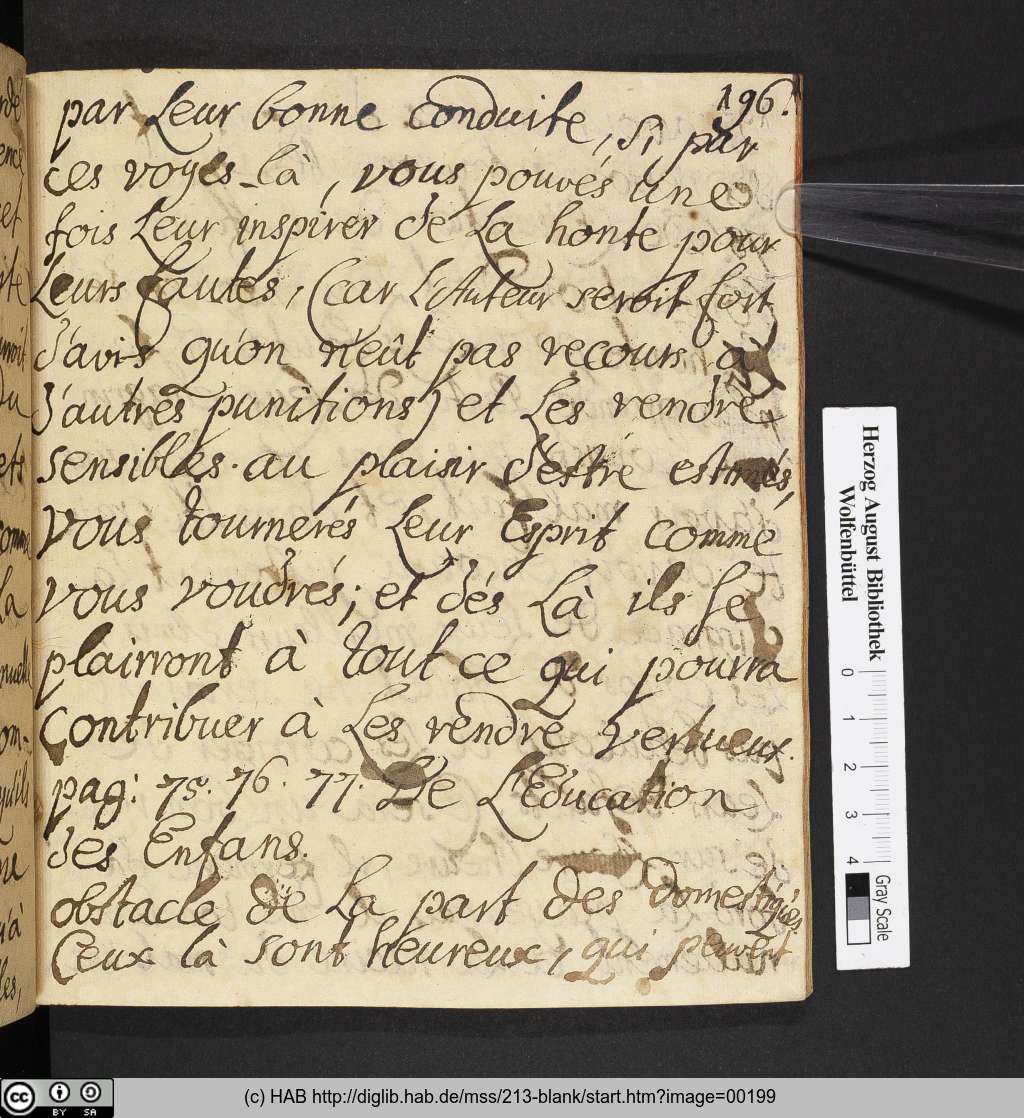 196.
par Leur bonne conduite, si par
ces voyes-là, vous pouvés une
fois Leur inspirer de La honte pour
Leurs fautes, (car L'Auteur seroit fort
d'avis qu'on n'eût pas recours à
d'autres punîtions) et Les rendre
sensibles au plaisir d'estre estimés,
vous tournerés Leur Esprit comme
vous voudrés; et dés Là ils se
plairront à tout ce qui pourra
Contribuer à Les rendre vertueux.
pag: 75. 76. 77. De L'Éducation
des Enfans.
obstacle de La part des domestiques
Ceux là sont heureux, qui peuvent
Herzog August Bibliothek
Wolfenbüttel
0 1 2 3 4
Gray Scale
cc BY SA
(c) HAB http://diglib.hab.de/mss/213-blank/start.htm?image=00199